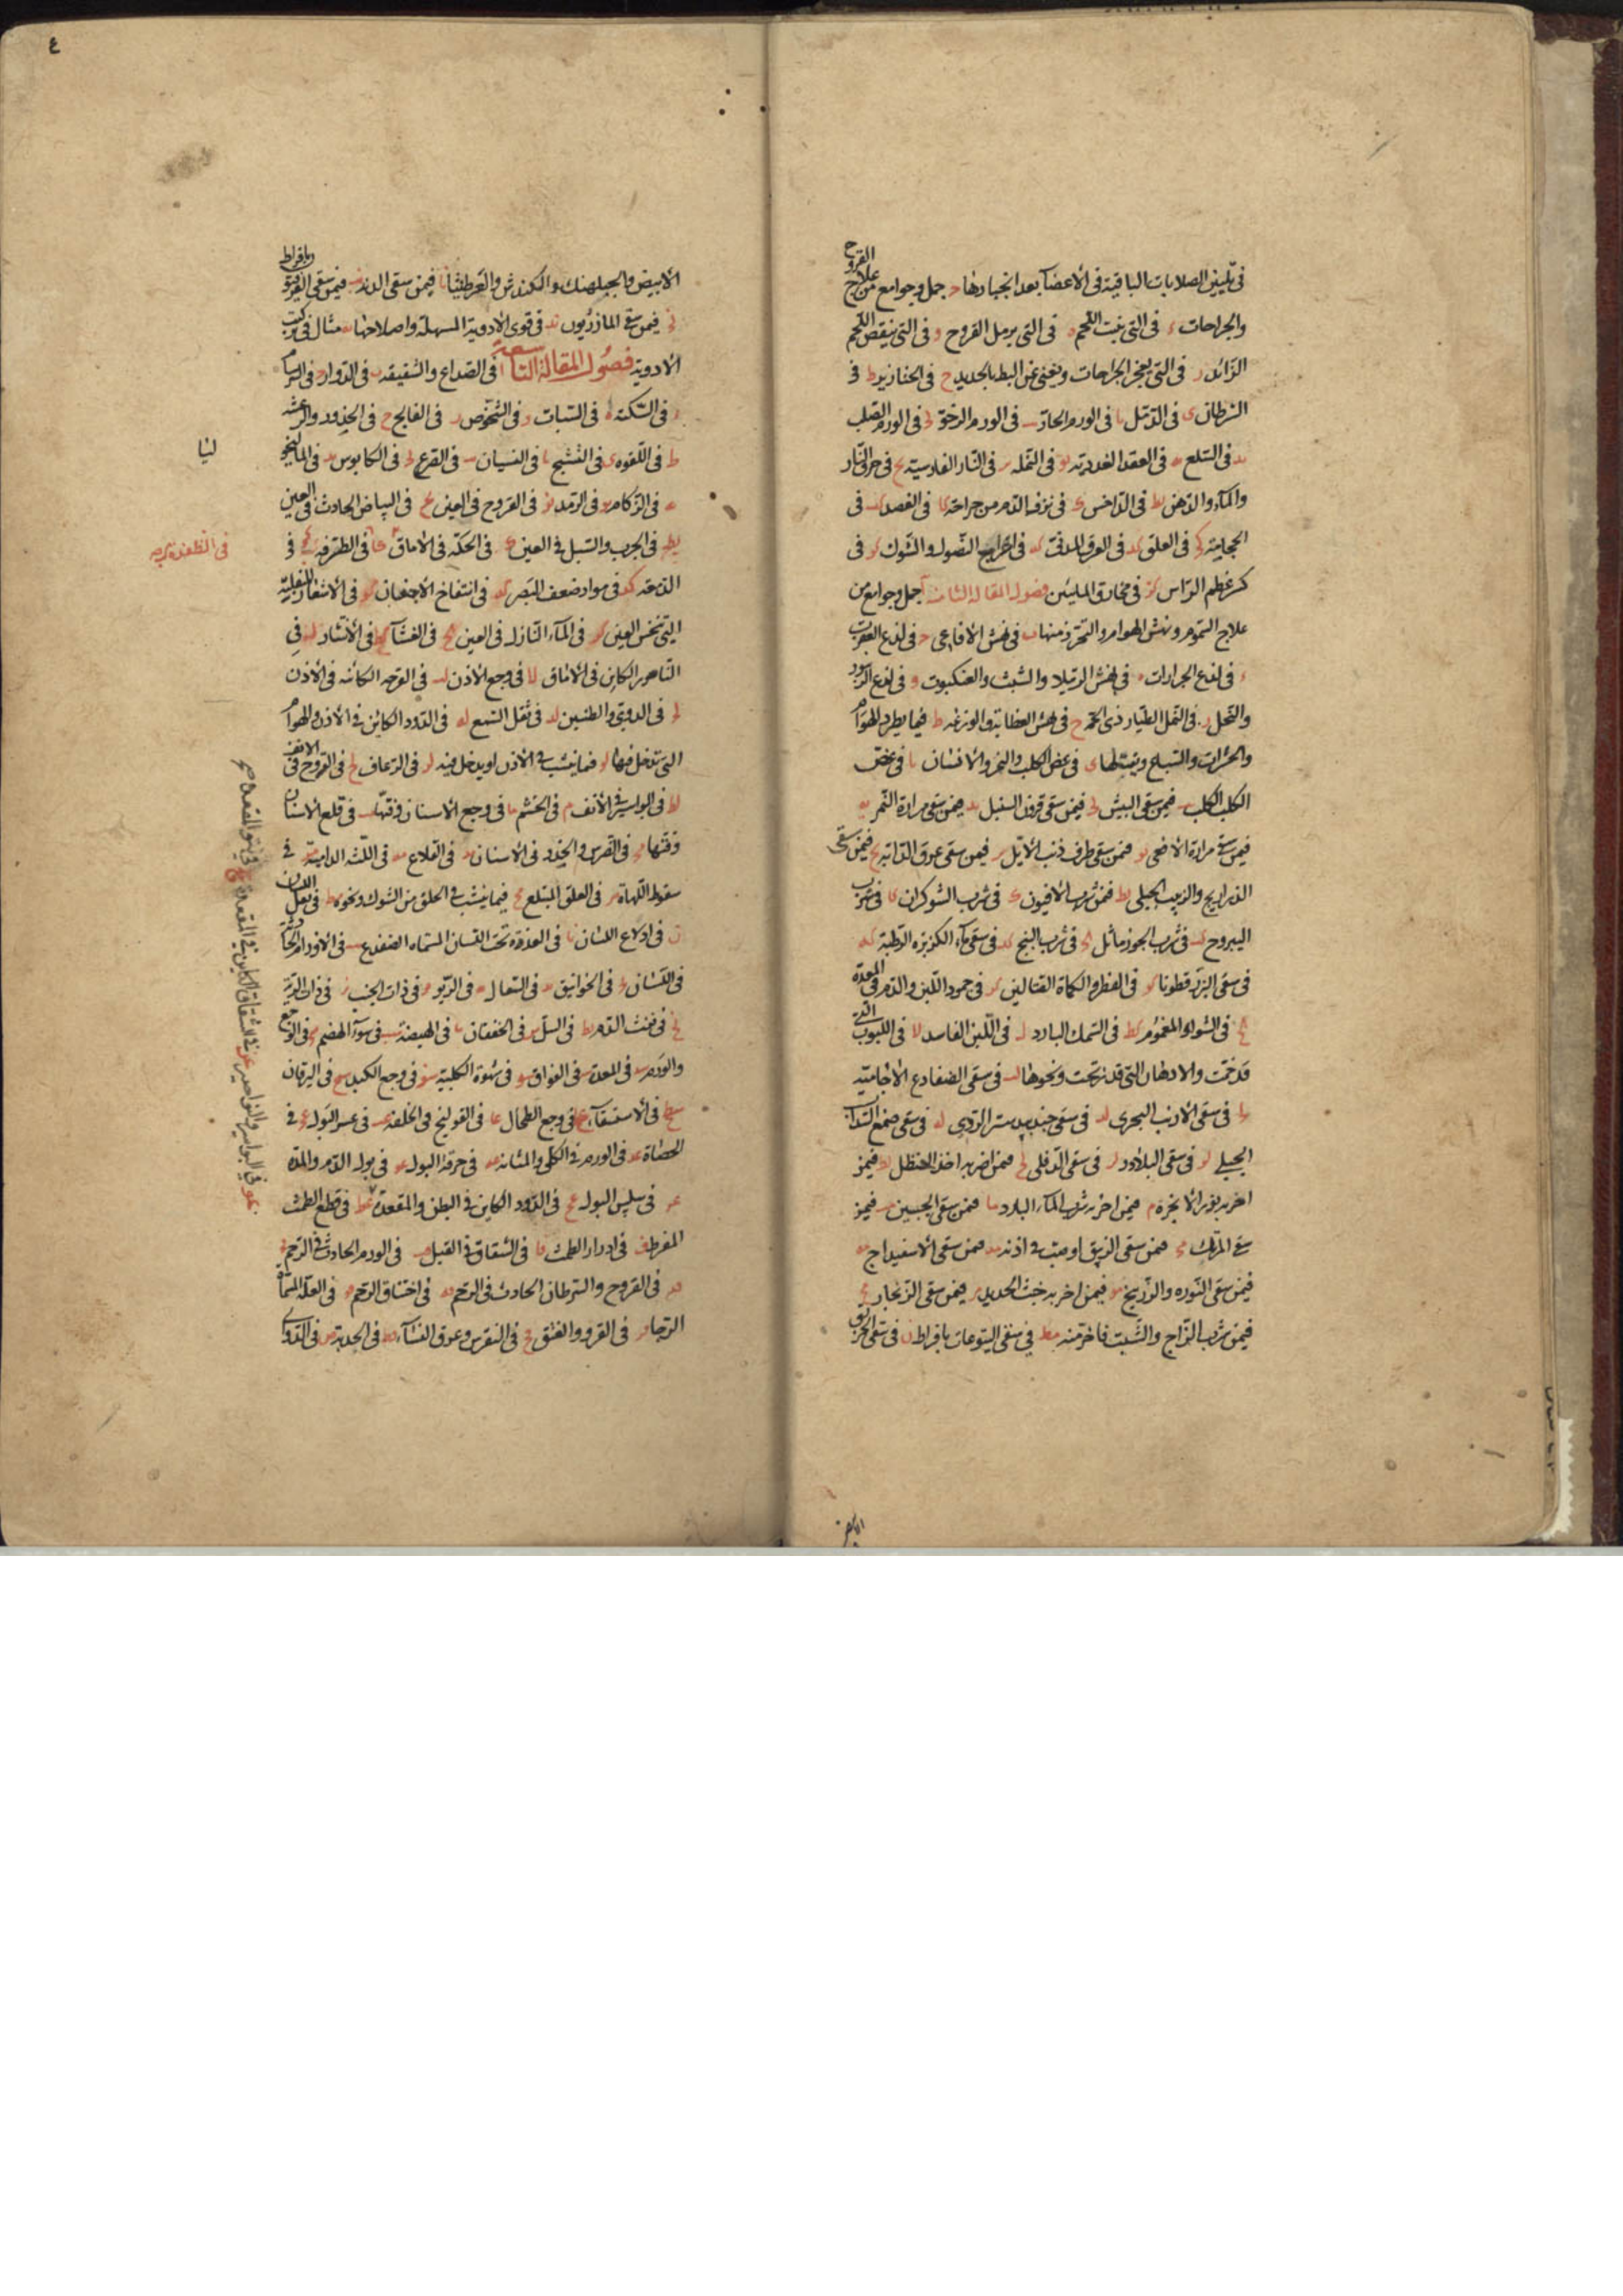 في تليين الصلابات الباقية في الأعضآ بعد انجبارها ح جمل وجوامع من علاج القروح
والجراحات ء في التي ينبت اللحم ه في التي يدمل القروح و في التي ينقص اللحم
الزائد ز في التي يفجر الجراحات ويغني عن البط بالحديد ح في الخنازير ط في
السرطان ى في الدمل يا في الورم الحار يب في الورم الرخو يج في الورم الصلب
يد في السلع يه في العقد الغدديه يو في النمله يز في النار الفارسية يح في حرق النار
والمآء والدهن يط في الداخس ك في نزف الدم من جراحة كا في الفصد كب في
الحجامة كج في العلق كد في العرق المدني كه في اخراج النصول والشوك كو في
كبر عظم الراس كز في مخاريق المليئين فصول المقاله الثامنة ا جمل وجوامع من
علاج السموم ونهش الهوام والتحرز منها ب في نهش الافاعي ح في لدغ العقرب
ء في لدغ الجرارات ه في نهش الرتيلا والشبث والعنكبوت و في لدغ الزنبور
والنحل ز في النمل الطيار ذي الحمه ح في نهش العظاية والوزغه ط فيما يطرد الهوام
والحشرات والسباع ويقتلها ى في عض الكلب والنمر والانسان يا في عض
الكلب الكلب يب فيمن سقى البيش يج فيمن سقى قرون السنبل يد فيمن سقى مرارة النمر يه
فيمن سقى مرارة الافعى يو فيمن سقى طرف ذنب الأيل يز فيمن سقى عرق الدابة يح فيمن سقى
الذراريح والزبيب الجبلي يط فيمن شرب الافيون ك في شرب الشوكران كا في شرب
اليبروح كب في شرب الجوز ماثل كج في شرب البنج كد في سقى مآء الكزبرة الرطبة كه
في سقى البزر قطونا كو في الفطر والكماة القتالين كز في جمود اللبن والدم في المعدة
كح في الشوآء المغموم كط في السمك البارد ل في اللبن الفاسد لا في اللبوب التي
قد زنخت والادهان التي قد زنخت ونحوها لب في سقى الضفادع الاجامية
لج في سقى الارنب البحري لد في سقى جندبيدستر الردي له في سقى صمغ السذاب
الجبلي لو في سقى البلادر لز في سقى الدفلى لح فيمن اضر به اخذ الحنظل لط فيمن
اضر به بزر الانجرة م فيمن اضر به شرب المآء البارد ما فيمن سقى الجبسين مب فيمن
سقى المرتك مج فيمن سقى الزيبق او صب في اذنه مد فيمن سقى الاسفيداج مه
فيمن سقى النوره والزرنيخ مو فيمن اضر به خبث الحديد مز فيمن سقى الزنجار مح
فيمن شرب الزاج والشب فاضر منه مط في سقى اليتوعات بافراط ن في سقى الخربق
الابيض
٤
الأبيض والجبلهنك والكندش والعرطنيثا نا فيمن سقى الدند نب فيمن سقى الغاريقون بافراط
نج فيمن سقى المازريون ند في قوى الادوية المسهلة واصلاحها نه مثال في تركيب
الادوية فصول المقالة التاسعة ا في الصداع والشقيقه ب في الدوار ج في السرسام
د في السكته ه في السبات و في الشخوص ز في الفالج ح في الخدر والرعشه
ط في اللقوه ى في التشنج يا في النسيان يب في الصرع يج في الكابوس يد في الماليخو
ليا
يه في الزكام يو في الرمد يز في القروح في العين يح في البياض الحادث في العين
يط في الجرب والسبل في العين ك في الحكة في الاماق كا في الطرفة كج في
في الظفرة كب
الدمعه كد في مواد ضعف البصر كه في انتفاخ الاجفان كو في الاشعار المنقلبة
التي تنخس العين كز في المآء النازل في العين كح في العشآ كط في الانتشار ل في
الناصور الكاين في الاماق لا في وجع الاذن لب في القرحه الكائنه في الأذن
لج في الدوي والطنين لد في ثقل السمع له في الدود الكائن في الاذن والهوام
التي تدخل فيها لو فيما ينشب في الاذن او يدخل فيه لز في الرعاف لح في القروح في الانف
لط في البواسير في الأنف م في الخشم ما في وجع الاسنان وفتها مب في قلع الاسنان
وفتها مج في الضرس والخدر في الاسنان مد في القلاع مه في اللثة الدامية مو في
سقوط اللهاة مز في العلق المبتلع مح فيما ينشب في الحلق من الشوك ونحوه مط في ثقل اللسان
ن في ادلاع اللسان نا في الغدة تحت اللسان المسماه الضفدع نب في الاورام الحادثة
في اللسان نج في الخوانيق ند في السعال نه في الربو نو في ذات الجنب نز في ذات الرية
نح في نفث الدم نط في السل س في الخفقان سا في الهيضة سب في سوء الهضم سج في الوجع
والورم سد في المعدة سه في الفواق سو في شهوة الكلبية سز في وجع الكبد سح في اليرقان
سط في الاستسقآء ع في وجع الطحال عا في القولنج في الخلفه عب في عسر البول عج في
الحصاة عد في الورم في الكلى والمثانه عه في حرقة البول عو في بول الدم والمده
عز في سلس البول عح في الدود الكاين في البطن والمقعدة عط في قطع الطمث
المفرط ف في ادرار الطمث فا في الشقاق في القبل فب في الورم الحادث في الرحم فج
فد في القروح والسرطان الحادث في الرحم فه في اختناق الرحم فو في العلة المسماة
الرجا فز في القرو والفتق فح في النقرس وعرق النسآء فط في الحدبة ص في الدوالي
عو في البواسير والنواصير عز في الشقاق الكاين في المقعدة عح في نتو المقعدة صح